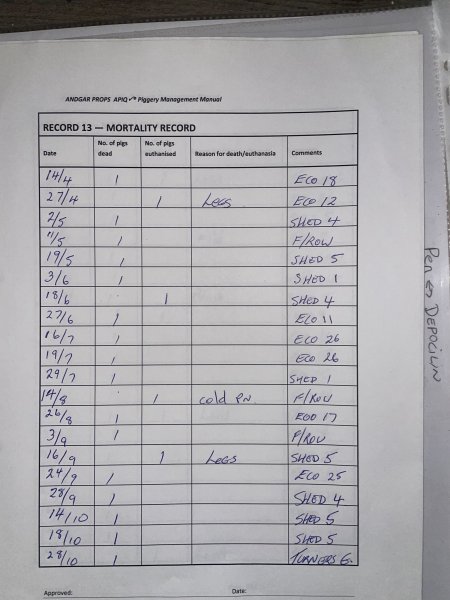 ANDGAR PROPS APIQ✓® Piggery Management Manual
RECORD 13 — MORTALITY RECORD
Date No. of pigs dead No. of pigs euthanised Reason for death/euthanasia Comments
14/4 1 ECO 18
27/4 1 LEGS ECO 12
2/5 1 SHED 4
11/5 1 F/ROW
19/5 1 SHED 5
3/6 1 SHED 1
18/6 1 SHED 4
27/6 1 ECO 11
16/7 1 ECO 26
19/7 1 ECO 26
29/7 1 SHED 1
14/8 1 cold F/ROW
26/8 1 ECO 17
3/9 1 F/ROW
16/9 1 LEGS SHED 5
24/9 1 ECO 25
28/9 1 SHED 4
14/10 1 SHED 5
18/10 1 SHED 5
28/10 1 TURNERS
Approved: Date:
Pen